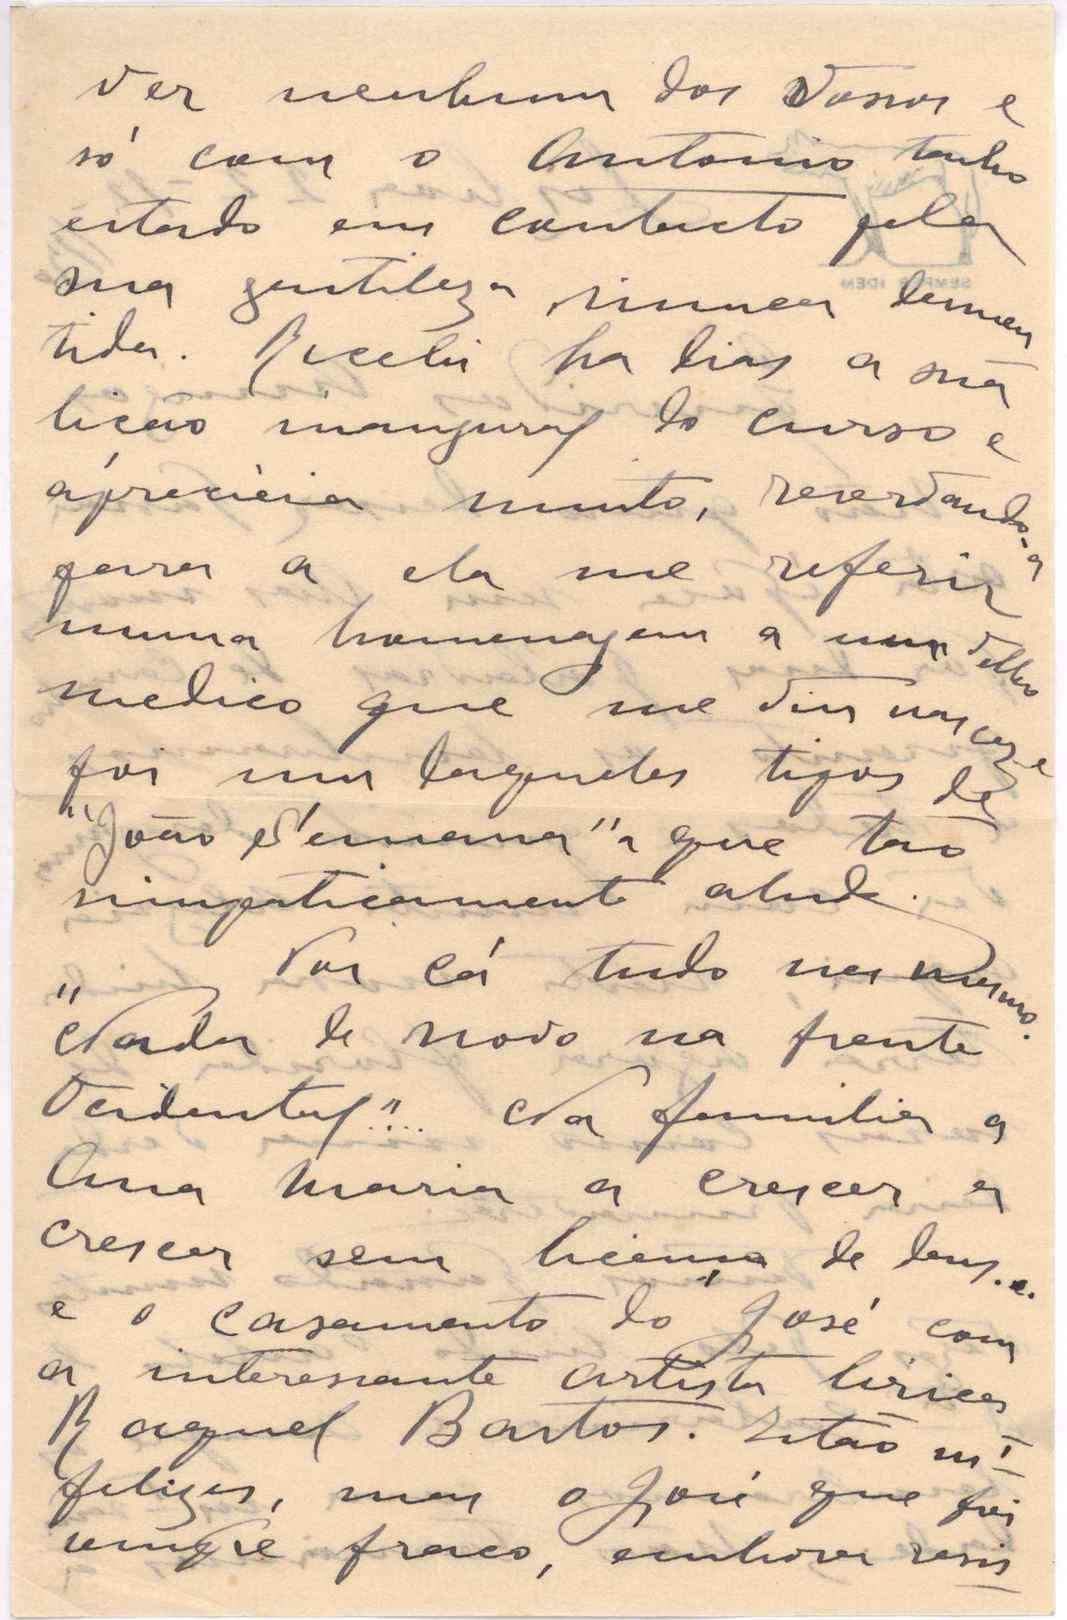 ver nenhum dos Vossos e
só com o Antonio tenho
estado em contacto pela
sua gentileza nunca desmen
tida. Recebi ha dias a sua
lição inaugural do curso e
apreciei-a muito, reservando-a
para a ela me referir
numa homenagem a um velho
medico que me viu nascer e
foi um daqueles tipos de
"João Semana" a que tão
simpaticamente alude.
Por cá tudo na mesma.
"Nada de novo na frente
Ocidental"... Na familia a
Ana Maria a crescer a
crescer sem licença de Deus...
e o casamento do José com
a interessante artista lirica
Raquel Bastos. Estão mtº
felizes, mas o José que foi
sempre fraco, embora resis
SEMPER IDEM